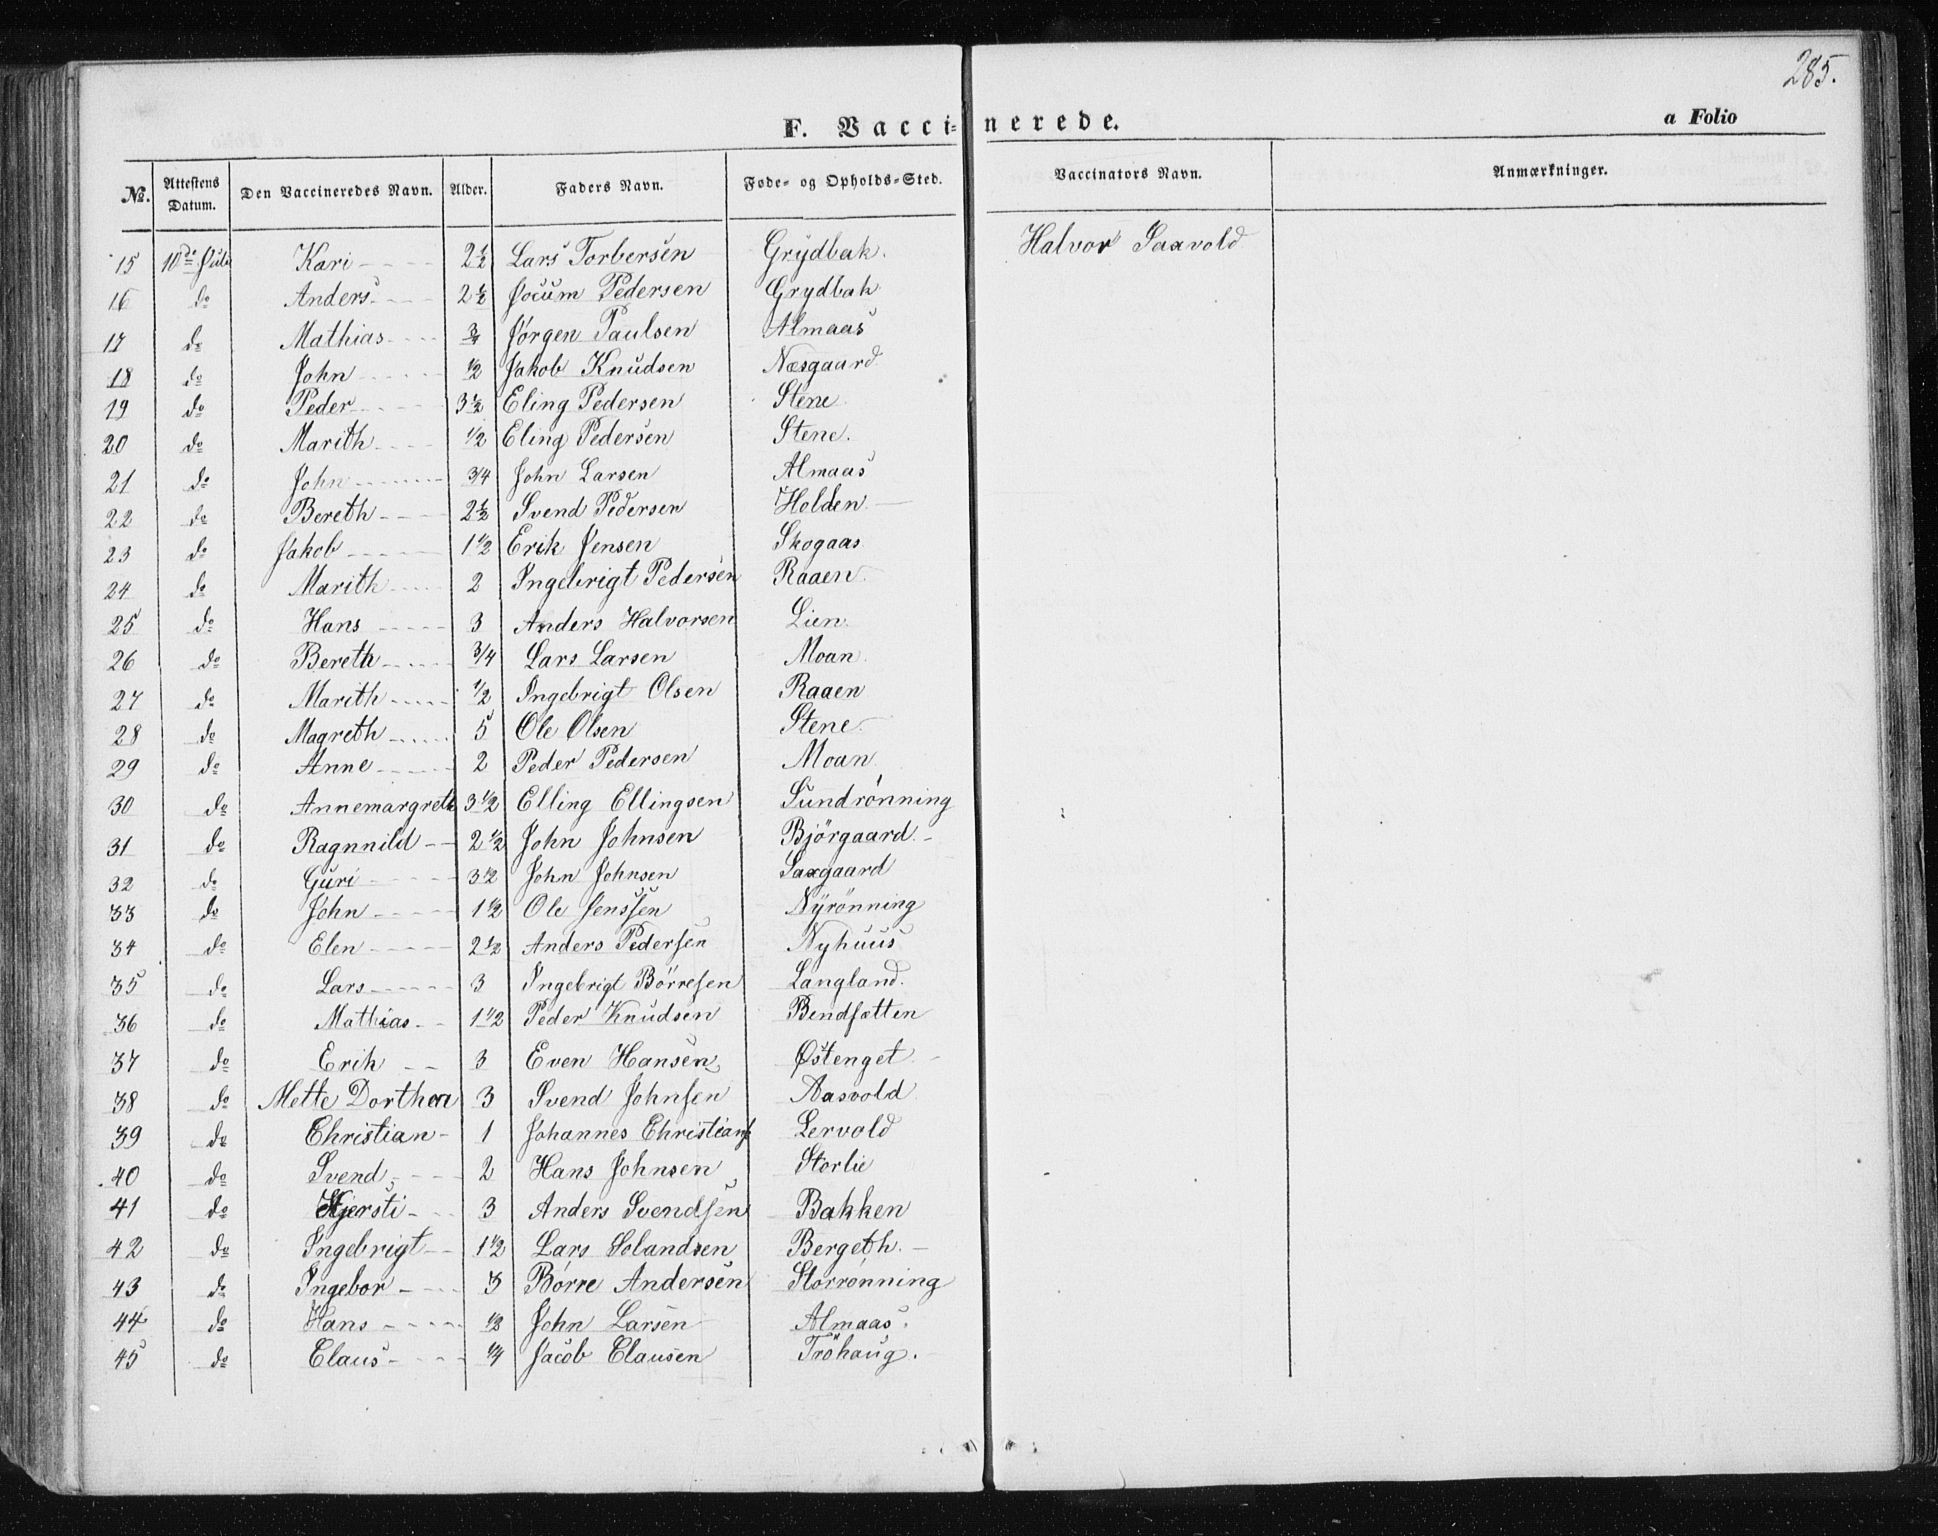 285.
F. Vacci-nerede.
a Folio
No. Attestens Datum. Den Vaccineredes Navn. Alder. Faders Navn. Føde- og Opholds-Sted. Vaccinators Navn. Anmærkninger.
15 10de Juli Kari 2 1/2 Lars Torbersen Grydbak. Halvor Saxvold
16 do Anders 2 1/2 Jocum Pedersen Grydbak
17 do Mathias 3/4 Jørgen Paulsen Almaas
18 do John 1/2 Jakob Knudsen Næsgaard
19 do Peder 3 1/2 Eling Pedersen Stene
20 do Marith 1/2 Eling Pedersen Stene.
21 do John 3/4 John Larsen Almaas
22 do Bereth 2 1/2 Svend Pedersen Holden
23 do Jakob 1 1/2 Erik Jensen Skogaas
24 do Marith 2 Ingebrigt Pedersen Raaen
25 do Hans 3 Anders Halvorsen Lien
26 do Bereth 3/4 Lars Larsen Moan
27 do Marith 1/2 Ingebrigt Olsen Raaen
28 do Magreth 5 Ole Olsen Stene
29 do Anne 2 Peder Pedersen Moan
30 do Annemargreth 3 1/2 Elling Ellingsen Sundrønning
31 do Ragnnild 2 1/2 John Johnsen Bjørgaard
32 do Guri 3 1/2 John Johnsen Saxgaard
33 do John 1 1/2 Ole Jenssen Nyrønning
34 do Elen 2 1/2 Anders Pedersen Nyhuus
35 do Lars 3 Ingebrigt Börresen Langland.
36 do Mathias 1 1/2 Peder Knudsen Bendsætten
37 do Erik 3 Even Hansen Østenget
38 do Mette Dorthea 3 Svend Johnsen Aasvold
39 do Christian 1 Johannes Christians Lervold
40 do Svend 2 Hans Johnsen Storlie
41 do Kjersti 3 Anders Svendsen Bakken
42 do Ingebrigt 1 1/2 Lars Solandsen Bergeth.
43 do Ingebor 3 Börre Andersen Storrønning
44 do Hans 1/2 John Larsen Almaas.
45 do Claus 1/4 Jacob Clausen Trøhaug.